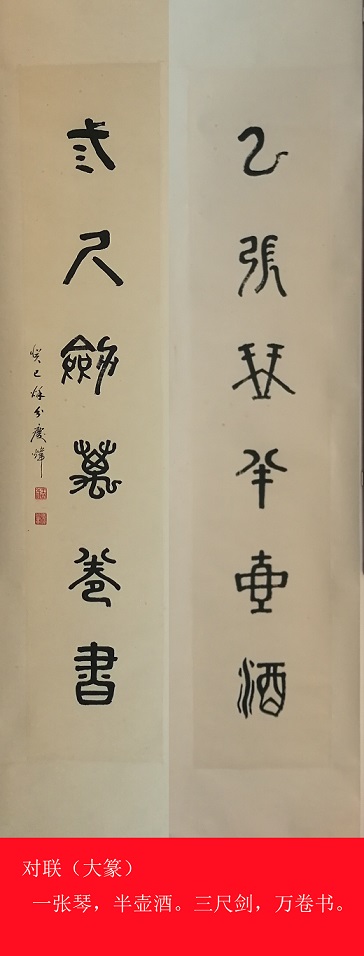 乙張琴半壺酒
弎尺劍萬卷書
癸巳秋分慶煒
对联（大篆）
一张琴，半壶酒。三尺剑，万卷书。